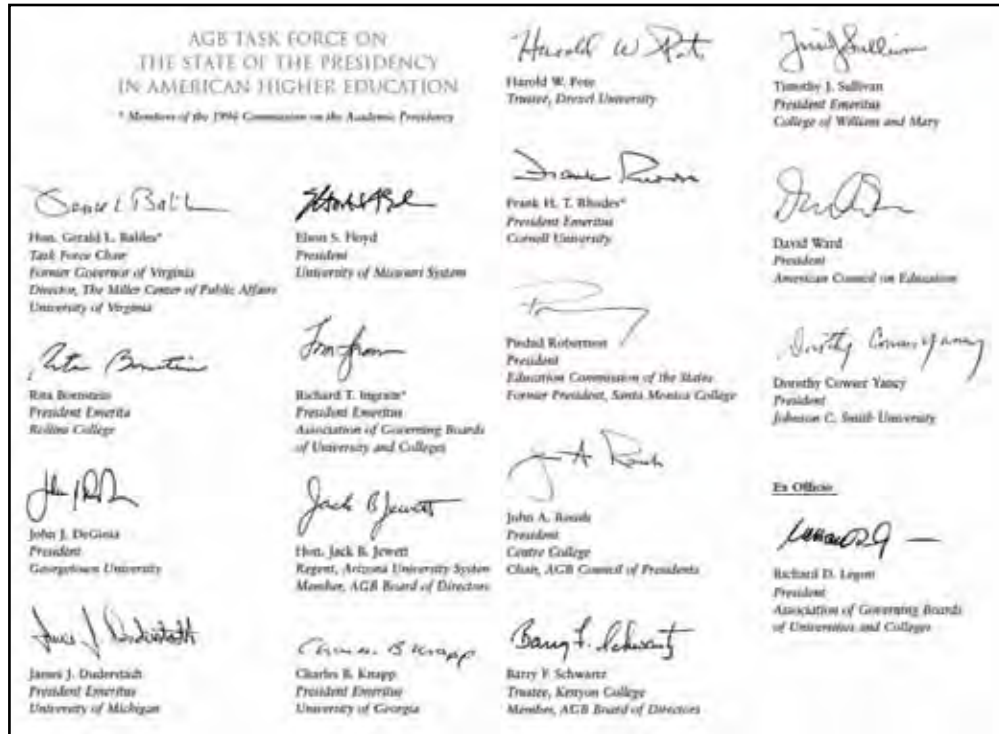 AGB TASK FORCE ON
THE STATE OF THE PRESIDENCY
IN AMERICAN HIGHER EDUCATION
* Members of the 1996 Commission on the Academic Presidency
Hon. Gerald L. Baliles*
Task Force Chair
Former Governor of Virginia
Director, The Miller Center of Public Affairs
University of Virginia
Rita Bornstein
Rita Bornstein
President Emerita
Rollins College
John J. DeGioia
President
Georgetown University
James J. Duderstadt
James J. Duderstadt
President Emeritus
University of Michigan
Elson S. Floyd
President
University of Missouri System
Richard T. Ingram*
President Emeritus
Association of Governing Boards
of University and Colleges
Jack B Jewett
Hon. Jack B. Jewett
Regent, Arizona University System
Member, AGB Board of Directors
Charles B Knapp
Charles B. Knapp
President Emeritus
University of Georgia
Harold W
Harold W. Pote
Trustee, Drexel University
Frank
Frank H. T. Rhodes*
President Emeritus
Cornell University
Piedad Robertson
President
Education Commission of the States
Former President, Santa Monica College
John A. Roush
President
Centre College
Chair, AGB Council of Presidents
Barry F. Schwartz
Barry F. Schwartz
Trustee, Kenyon College
Member, AGB Board of Directors
Timothy J. Sullivan
President Emeritus
College of William and Mary
David Ward
President
American Council on Education
Dorothy Cowser Yancy
Dorothy Cowser Yancy
President
Johnson C. Smith University
Ex Officio
Richard D. Legon
President
Association of Governing Boards
of Universities and Colleges